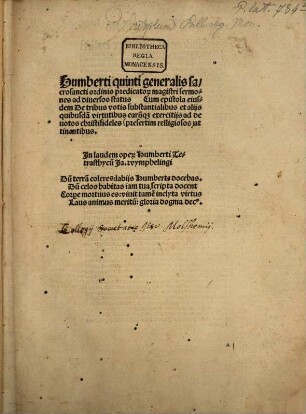 P. lat. 784
BIBLIOTHECA
REGIA
MONACENSIS.
Humberti quinti generalis sa
crosancti ordinis predicatoꝝ magistri sermo
nes ad diuersos status Cum epistola eius
dem De tribus votis substantialibus et alijs
quibusdã virtutibus earũqꝫ exercitijs ad de
uotos christifideles (presertim relligiosos) ut
tinantibus.
In laudem opeꝝ Humberti Te
trasthycũ Ja. vvympbelingi
Dũ terrã coleres: labijs Humberte docebas.
Dũ celos habitas iam tua scripta docent
Corpe mortuus es: viuit tamẽ inclyta virtus
Laus animus meritũ: gloria dogma decꝰ.
Collegij Societatis Iesu Molshemij